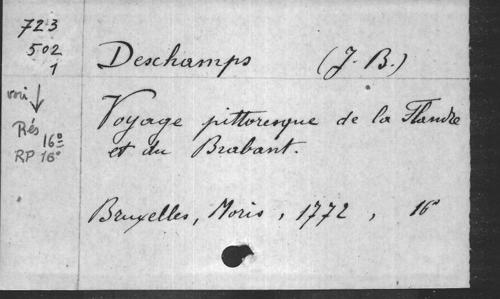 723
502
1
Deschamps (J. B.)
voir
Voyage pittoresque de la Flandre
et du Brabant.
Rés 16°
RP 16°
Bruxelles, Moris, 1772, 16°